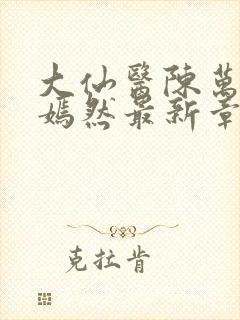 大仙醫陳萬
嫣然最新章
克拉肯